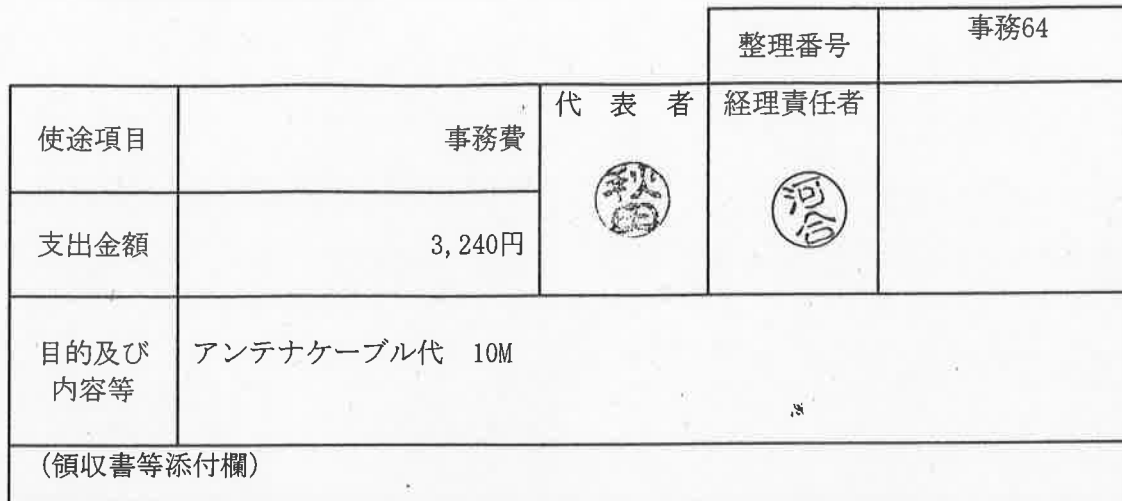 整理番号
事務64
使途項目
事務費
代 表 者
経理責任者
秋田
河合
支出金額
3,240円
目的及び
内容等
アンテナケーブル代 10M
(領収書等添付欄)